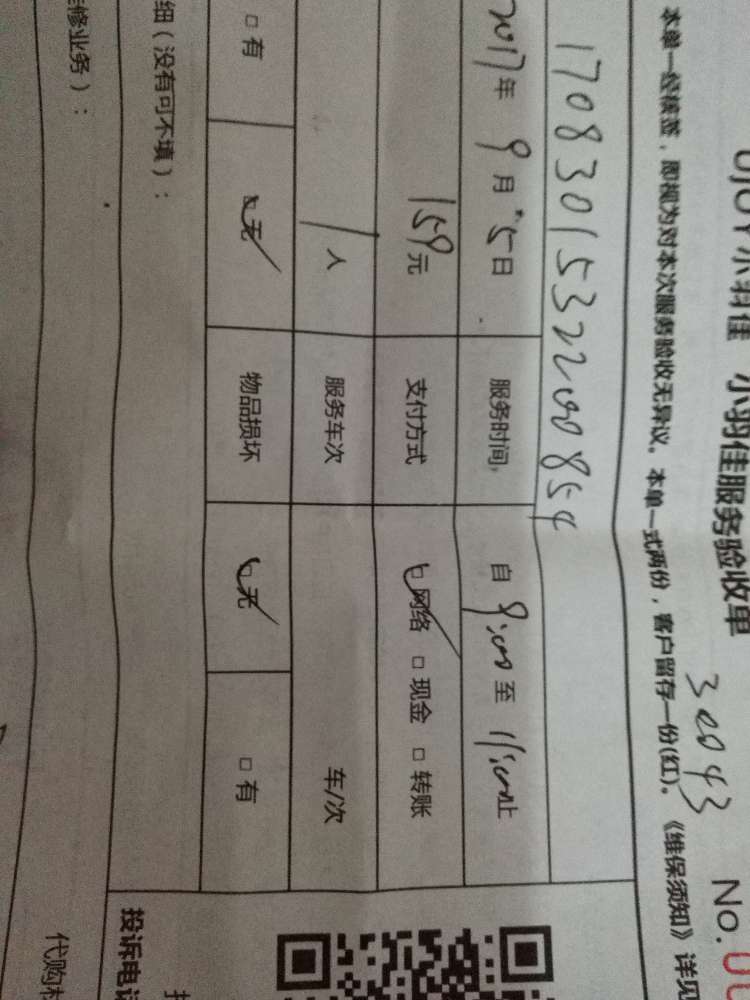 小羽佳服务验收单
30043
No.
本单一经核签，即视为对本次服务验收无异议。本单一式两份，客户留存一份(红)。《维保须知》详见
17083015322200854
2017年 9月 5日 服务时间 自 9:00 至 11:00止
159元 支付方式 □网络 □现金 □转账
1人 服务车次 车/次
□有 □无 物品损坏 □无 □有
细（没有可不填）：
投诉电话
修业务）：